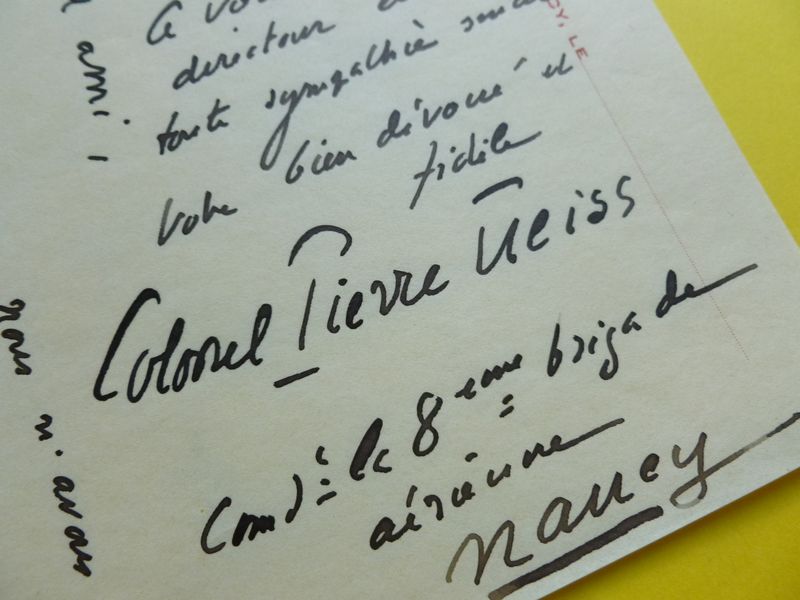 ce vo
directeur d
toute sympathie
votre bien dévoué et
fidèle
Colonel Pierre Weiss
Comdt la 8ème brigade
aérienne
Nancy
CY, LE
ami,
nous n'avons